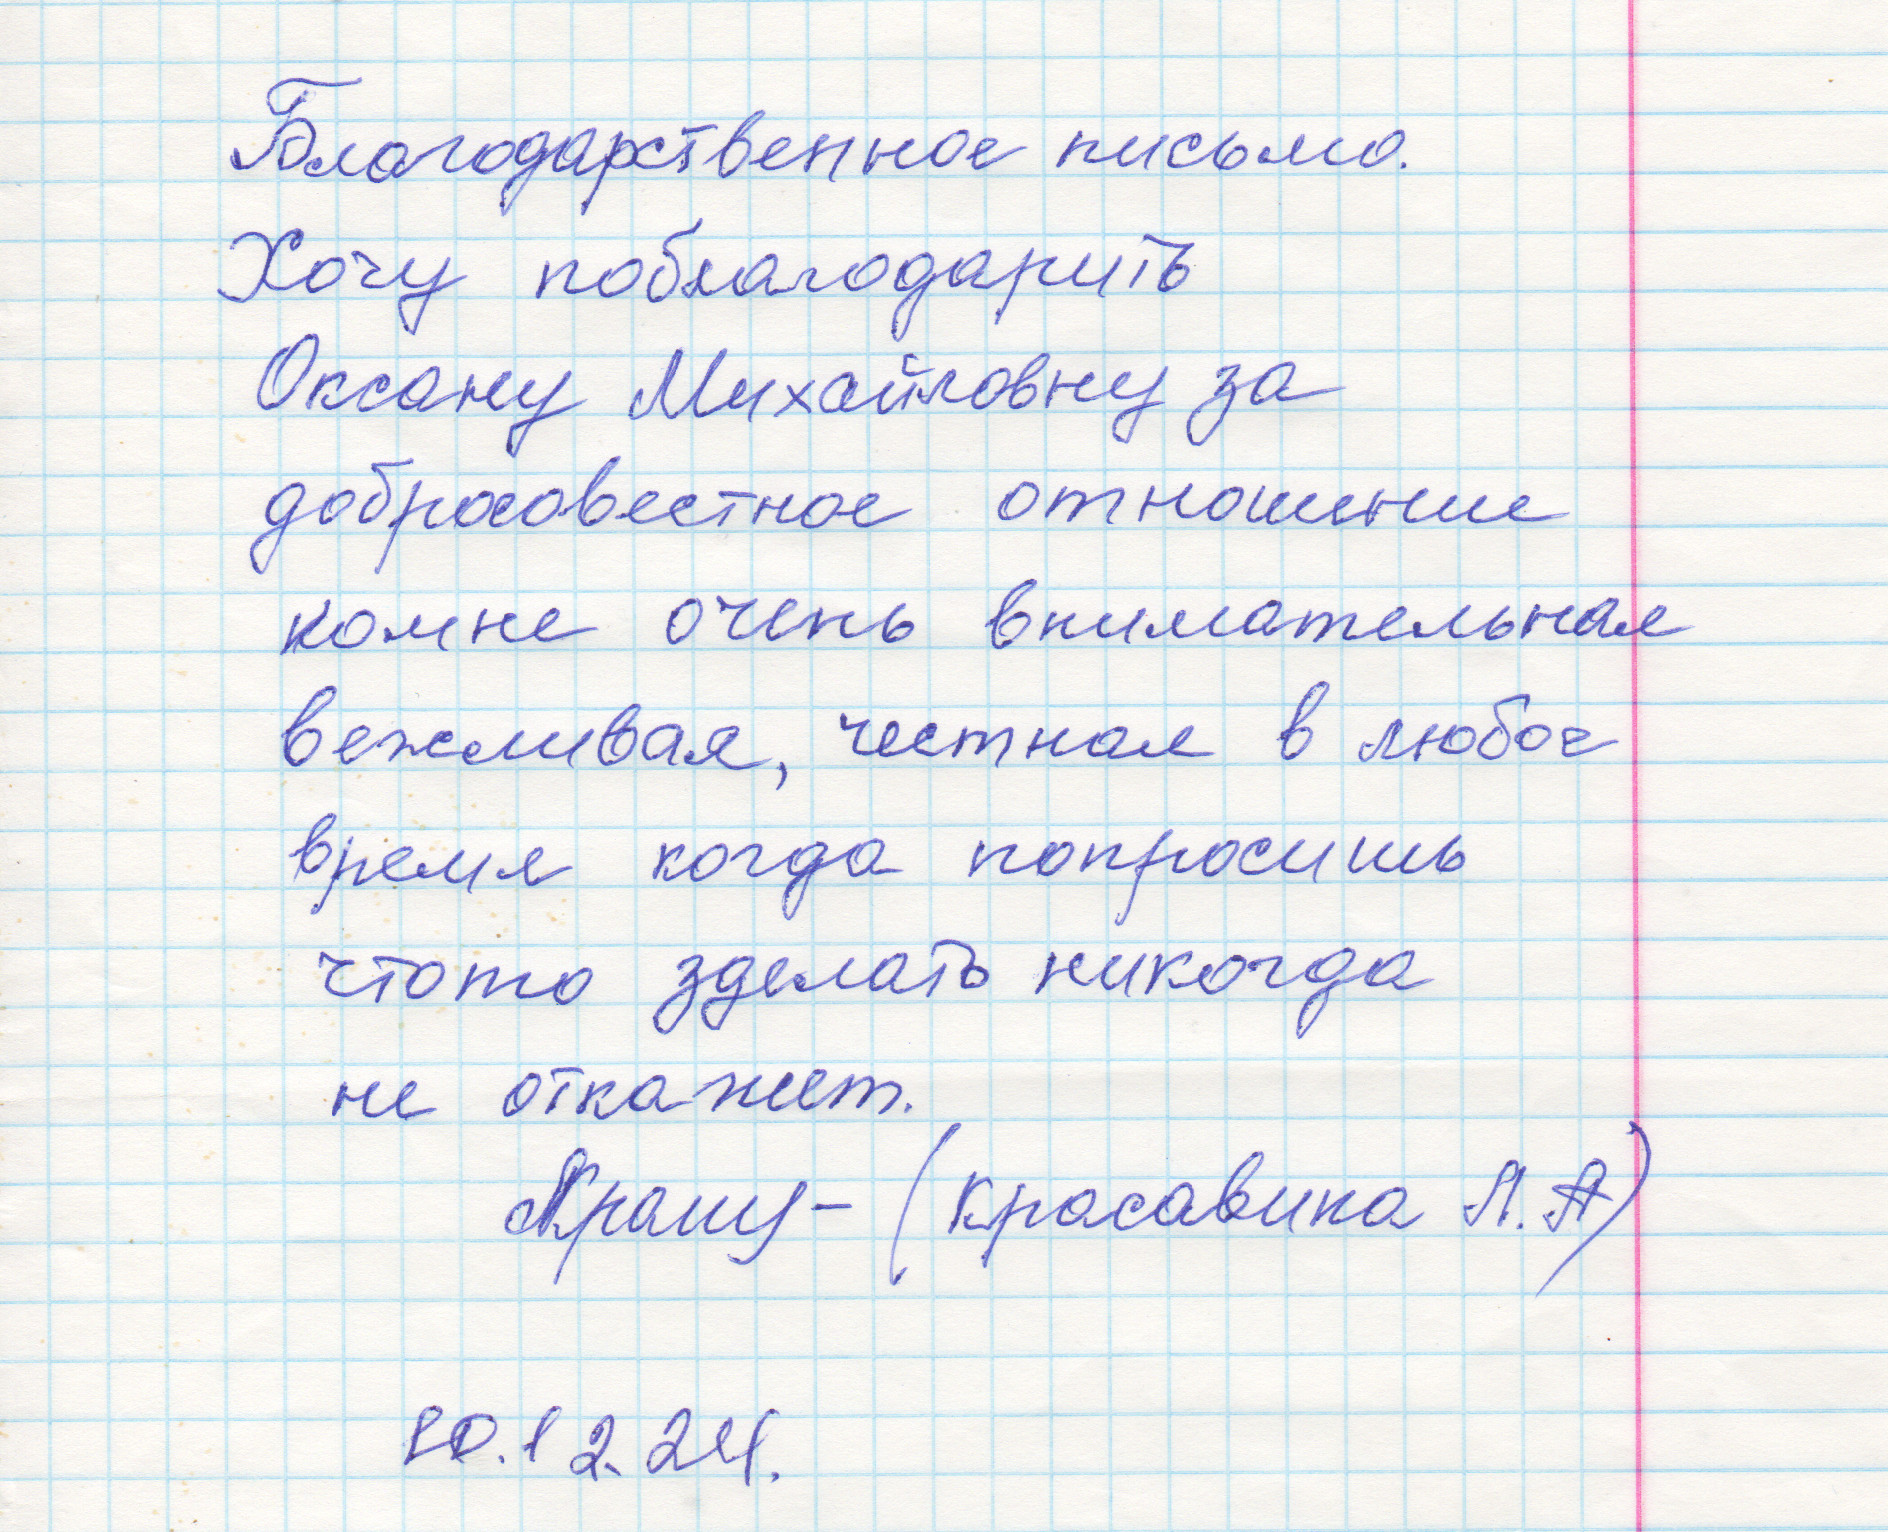 Благодарственное письмо.
Хочу поблагодарить
Оксану Михайловну за
добросовестное отношение
комне очень внимательная
вежливая, честная в любое
время когда попросишь
чтото зделать никогда
не откажет.
(Красавина Л.А)
10.12.24.